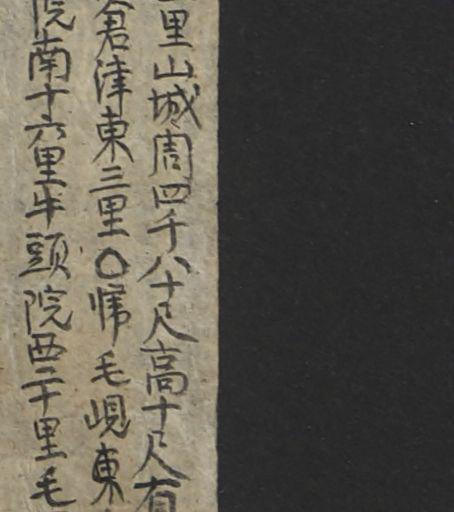 里山城周四千八十尺高十尺有
倉津東三里〇悌毛峴東
院南十六里牛頭院西二十里毛